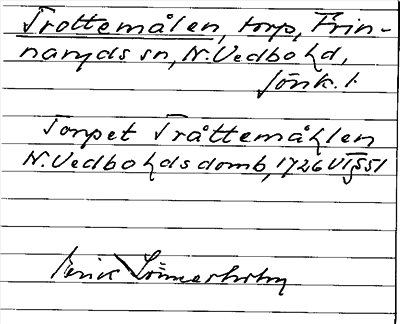 Trottemålen, torp, Frin-
naryds sn, N. Vedbo hd,
Jönk. l.
Torpet Tråttemåhlen
N. Vedbo hds domb, 1726 VT § 51
Erick Linnerholm